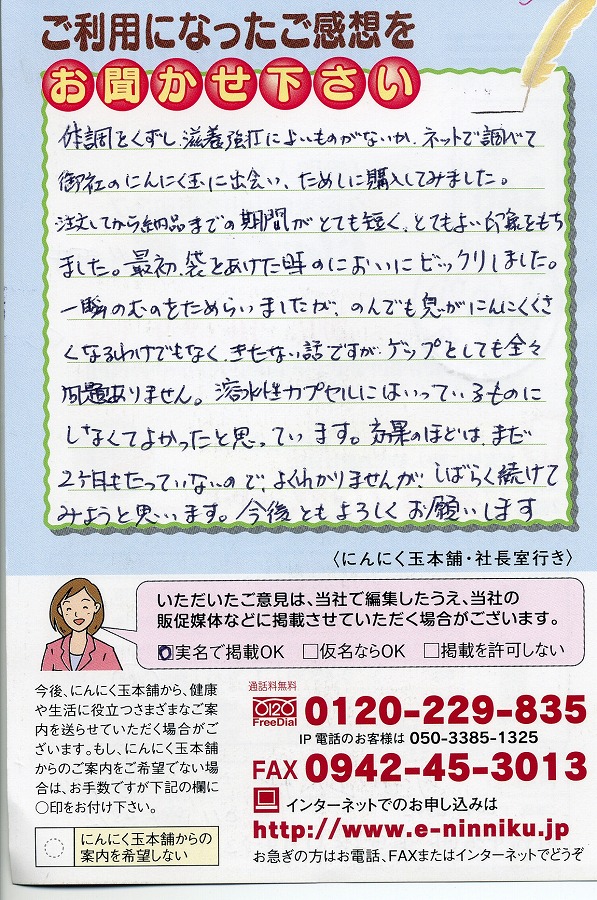 ご利用になったご感想を
お聞かせ下さい
体調をくずし、滋養強壮によいものがないか、ネットで調べて
御社のにんにく玉に出会い、ためしに購入してみました。
注文してから納品までの期間がとても短く、とてもよい印象をもち
ました。最初、袋をあけた時のにおいにビックリしました。
一瞬のむのをためらいましたが、のんでも息がにんにくくさ
くなるわけでもなく、きたない話ですが、ゲップをしても全々
問題ありません。溶水性カプセルにはいっているものに
しなくてよかったと思っています。効果のほどは、まだ
2ケ月もたっていないので、よくわかりませんが、しばらく続けて
みようと思います。今後ともよろしくお願いします
〈にんにく玉本舗・社長室行き〉
いただいたご意見は、当社で編集したうえ、当社の
販促媒体などに掲載させていただく場合がございます。
実名で掲載OK □仮名ならOK □掲載を許可しない
今後、にんにく玉本舗から、健康
や生活に役立つさまざまなご案
内を送らせていただく場合がご
ざいます。もし、にんにく玉本舗
からのご案内をご希望でない場
合は、お手数ですが下記の欄に
○印をお付け下さい。
にんにく玉本舗からの
案内を希望しない
通話料無料
0120
FreeDial
0120-229-835
IP電話のお客様は 050-3385-1325
FAX 0942-45-3013
インターネットでのお申し込みは
http://www.e-ninniku.jp
お急ぎの方はお電話、FAXまたはインターネットでどうぞ